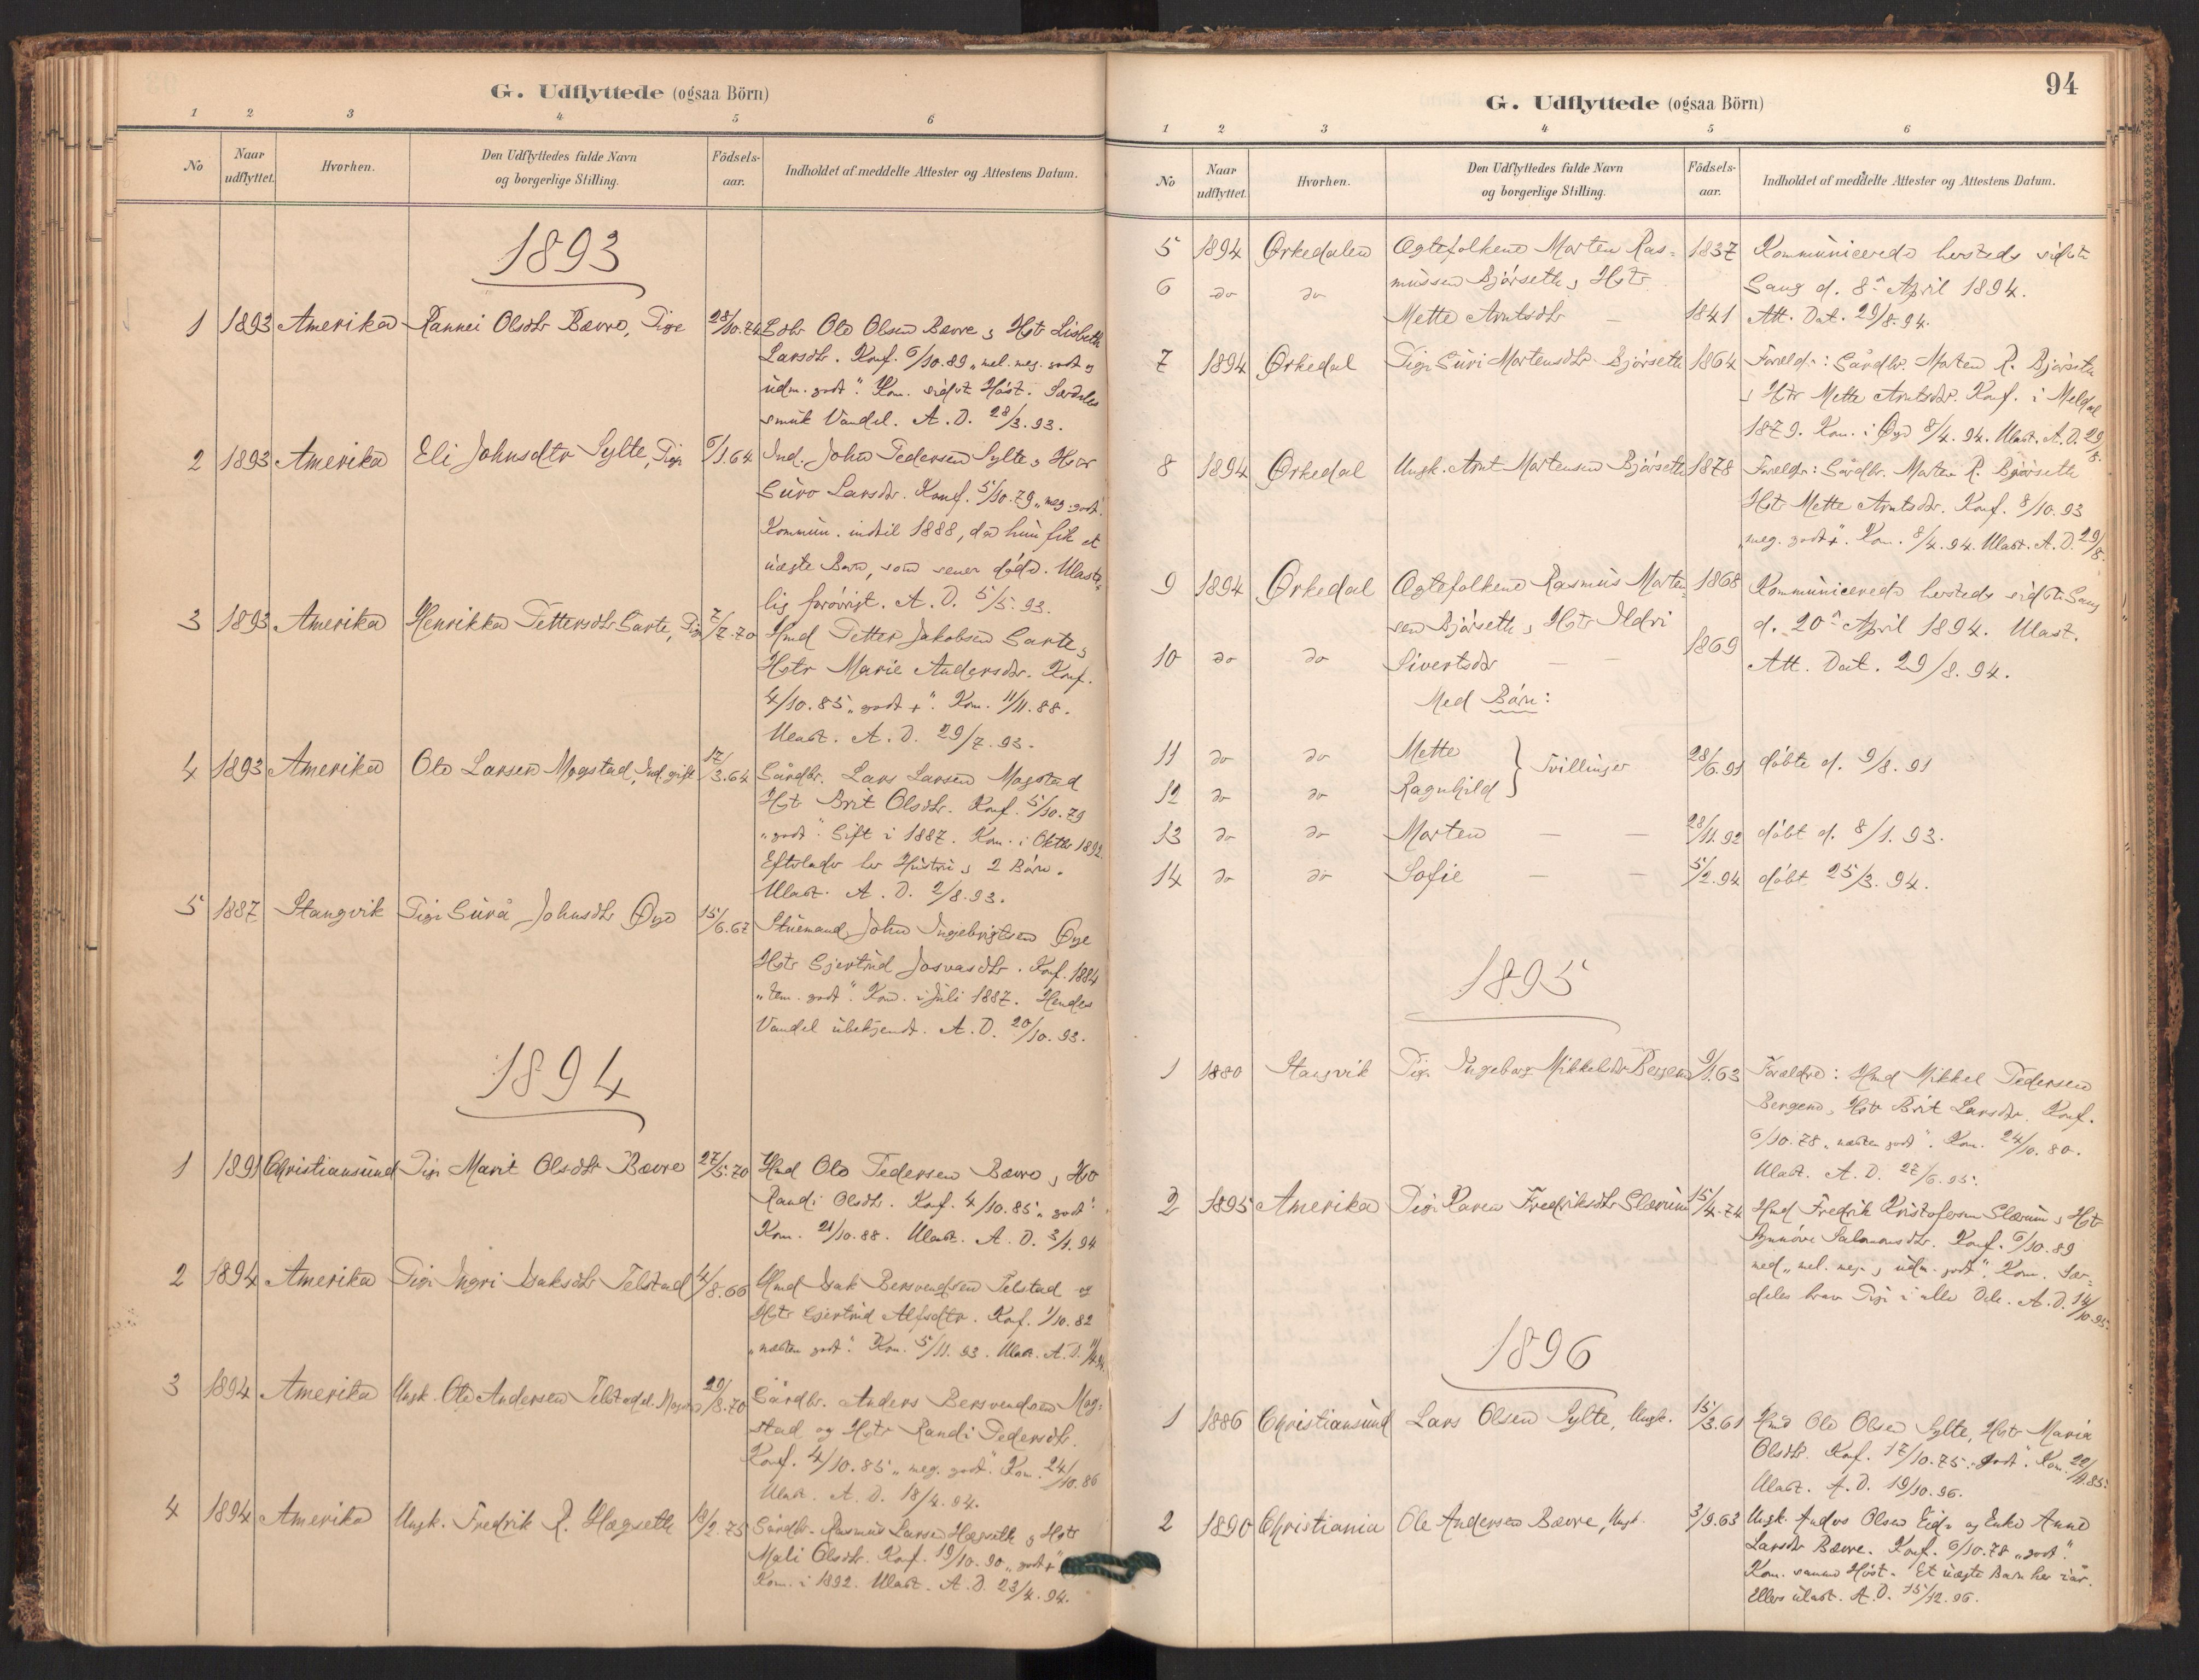 G. Udflyttede (ogsaa Börn)
1 2 3 4 5 6
No
Naar udflyttet.
Hvorhen.
Den Udflyttedes fulde Navn og borgerlige Stilling.
Födsels-aar.
Indholdet af meddelte Attester og Attestens Datum.
1893
1 1893 Amerika Rannei Olsdtr Bævre, Pige 28/10.74 Ole Olsen Bævre & Hstr Lisbeth
Larsdtr. Konf. 6/10.89 „mel. meg. godt og
udm. godt". Kom. sidst Høst. Særdeles
smuk Vandel. A. D. 28/3.93.
2 1893 Amerika Eli Johnsdtr Sylte, Pige 6/1.64 Ind. John Pedersen Sylte & Hstr
Guro Larsdtr. Konf. 5/10.79 „meg. godt".
Kommun. indtil 1888, da hun fik et
uægte Barn, som senere døde. Ulaste-
lig forøvrigt. A. D. 5/5.93.
3 1893 Amerika Henrikka Pettersdtr Garte, Pige 7/7.70 Hmd Petter Jakobsen Garte &
Hstr Marie Andersdtr. Konf.
4/10.85 „godt +". Kom. 11/11.88.
Ulast. A. D. 29/7.93.
4 1893 Amerika Ole Larsen Mogstad, Ind. gift 17/3.64 Gårdbr. Lars Larsen Mogstad
Hstr Brit Olsdtr. Konf. 5/10.79
„godt". Gift i 1887. Kom. i Oktbr 1892.
Efterlader her Hustru & 2 Børn.
Ulast. A. D. 2/8.93.
5 1887 Stangvik Pige Gurå Johnsdtr Øye 15/6.67 Stuemand John Ingebrigtsen Øye
Hstr Gjertrud Josvasdtr. Konf. 1884
„tem. godt". Kom. i Juli 1887. Hendes
Vandel ubekjendt. A. D. 20/10.93.
1894
1 1891 Christiansund Pige Marit Olsdtr Bævre 27/5.70 Hmd Ole Pedersen Bævre & Hstr
Randi Olsdtr. Konf. 4/10.85 „godt".
Kom. 21/10.88. Ulast. A. D. 3/1.94
2 1894 Amerika Pige Ingri Isaksdtr Telstad 4/8.66 Hmd Isak Bersvendsen Telstad og
Hstr Gjertrud Alfsdtr. Konf. 1/10.82
„næsten godt". Kom. 5/11.93. Ulast. A. D.
3 1894 Amerika Ungk. Ole Andersen Telstad el. Mogstad 29/8.70 Gårdbr. Anders Bersvendsen Mog-
stad og Hstr Randi Pedersdtr.
Konf. 4/10.85 „meg. godt". Kom. 24/10.86
Ulast. A. D. 18/4.94.
4 1894 Amerika Ungk. Fredrik R. Hægseth 18/2.75 Gårdbr. Rasmus Larsen Hægseth & Hstr
Mali Olsdtr. Konf. 19/10.90 „godt +".
Kom. i 1892. Ulast. A. D. 23/4.94.
94
G. Udflyttede (ogsaa Börn)
1 2 3 4 5 6
No
Naar udflyttet.
Hvorhen.
Den Udflyttedes fulde Navn og borgerlige Stilling.
Födsels-aar.
Indholdet af meddelte Attester og Attestens Datum.
5 1894 Ørkedalen Ægtefolkene Morten Ras- 1837 Kommunicerede herstedes sidste
6 do do mussen Bjørseth & Hstr Gang d. 8de April 1894.
Mette Arntsdtr — 1841 Att. Dat. 29/8.94.
7 1894 Ørkedal Pige Guri Mortensdtr Bjørseth 1864 Foreld.: Gårdbr. Morten R. Bjørseth
& Hstr Mette Arntsdtr. Konf. i Meldal
1879. Kom. i Øye 8/4.94. Ulast. A. D. 29/8.
8 1894 Ørkedal Ungk. Arnt Mortensen Bjørseth 1878 Foreldr: Gårdbr. Morten R. Bjørseth
Hstr Mette Arntsdtr. Konf. 8/10.93
„meg. godt +". Kom. 8/4.94. Ulast. A. D. 29/8.
9 1894 Ørkedal Ægtefolkene Rasmus Morten- 1868 Kommunicerede herstedes sidste Gang
sen Bjørseth & Hstr Ildri d. 20de April 1894. Ulast.
10 do do Sivertsdtr — — 1869 Att. Dat. 29/8.94.
Med Børn:
11 do do Mette } Tvillinger 28/6.91 døbte d. 9/8.91
12 do do Ragnhild
13 do do Morten — — 28/11.92 døbt d. 8/1.93.
14 do do Sofie — — 5/2.94 døbt 25/3.94.
1895
1 1880 Stangvik Pige Ingeborg Mikkelsdtr Bergem 9/1.63 Forældre: Hmd Mikkel Pedersen
Bergem, Hstr Brit Larsdtr. Konf.
6/10.78 „næsten godt". Kom. 24/10.80.
Ulast. A. D. 27/6.95.
2 1895 Amerika Pige Karen Fredriksdtr Slærum 15/4.74 Hmd Fredrik Kristofersen Slærum & Hstr
Synnøve Salamonsdtr. Konf. 6/10.89
med „mel. meg. & udm. godt". Kom. Sær-
deles brav Pige i alle Dele. A. D. 14/10.95.
1896
1 1886 Christiansund Lars Olsen Sylte, Ungk. 15/3.61 Hmd Ole Olsen Sylte, Hstr Maria
Olsdtr. Konf. 17/10.75 „godt". Kom. 22/11.85.
Ulast. A. D. 19/10.96.
2 1890 Christiania Ole Andersen Bævre, Ungk. 3/9.63 Ungk. Anders Olsen Eide og Enke Anne
Larsdtr Bævre. Konf. 6/10.78 „godt".
Kom. samme Høst. Et uægte Barn her i år.
Ellers ulast. A. D. 15/12.96.